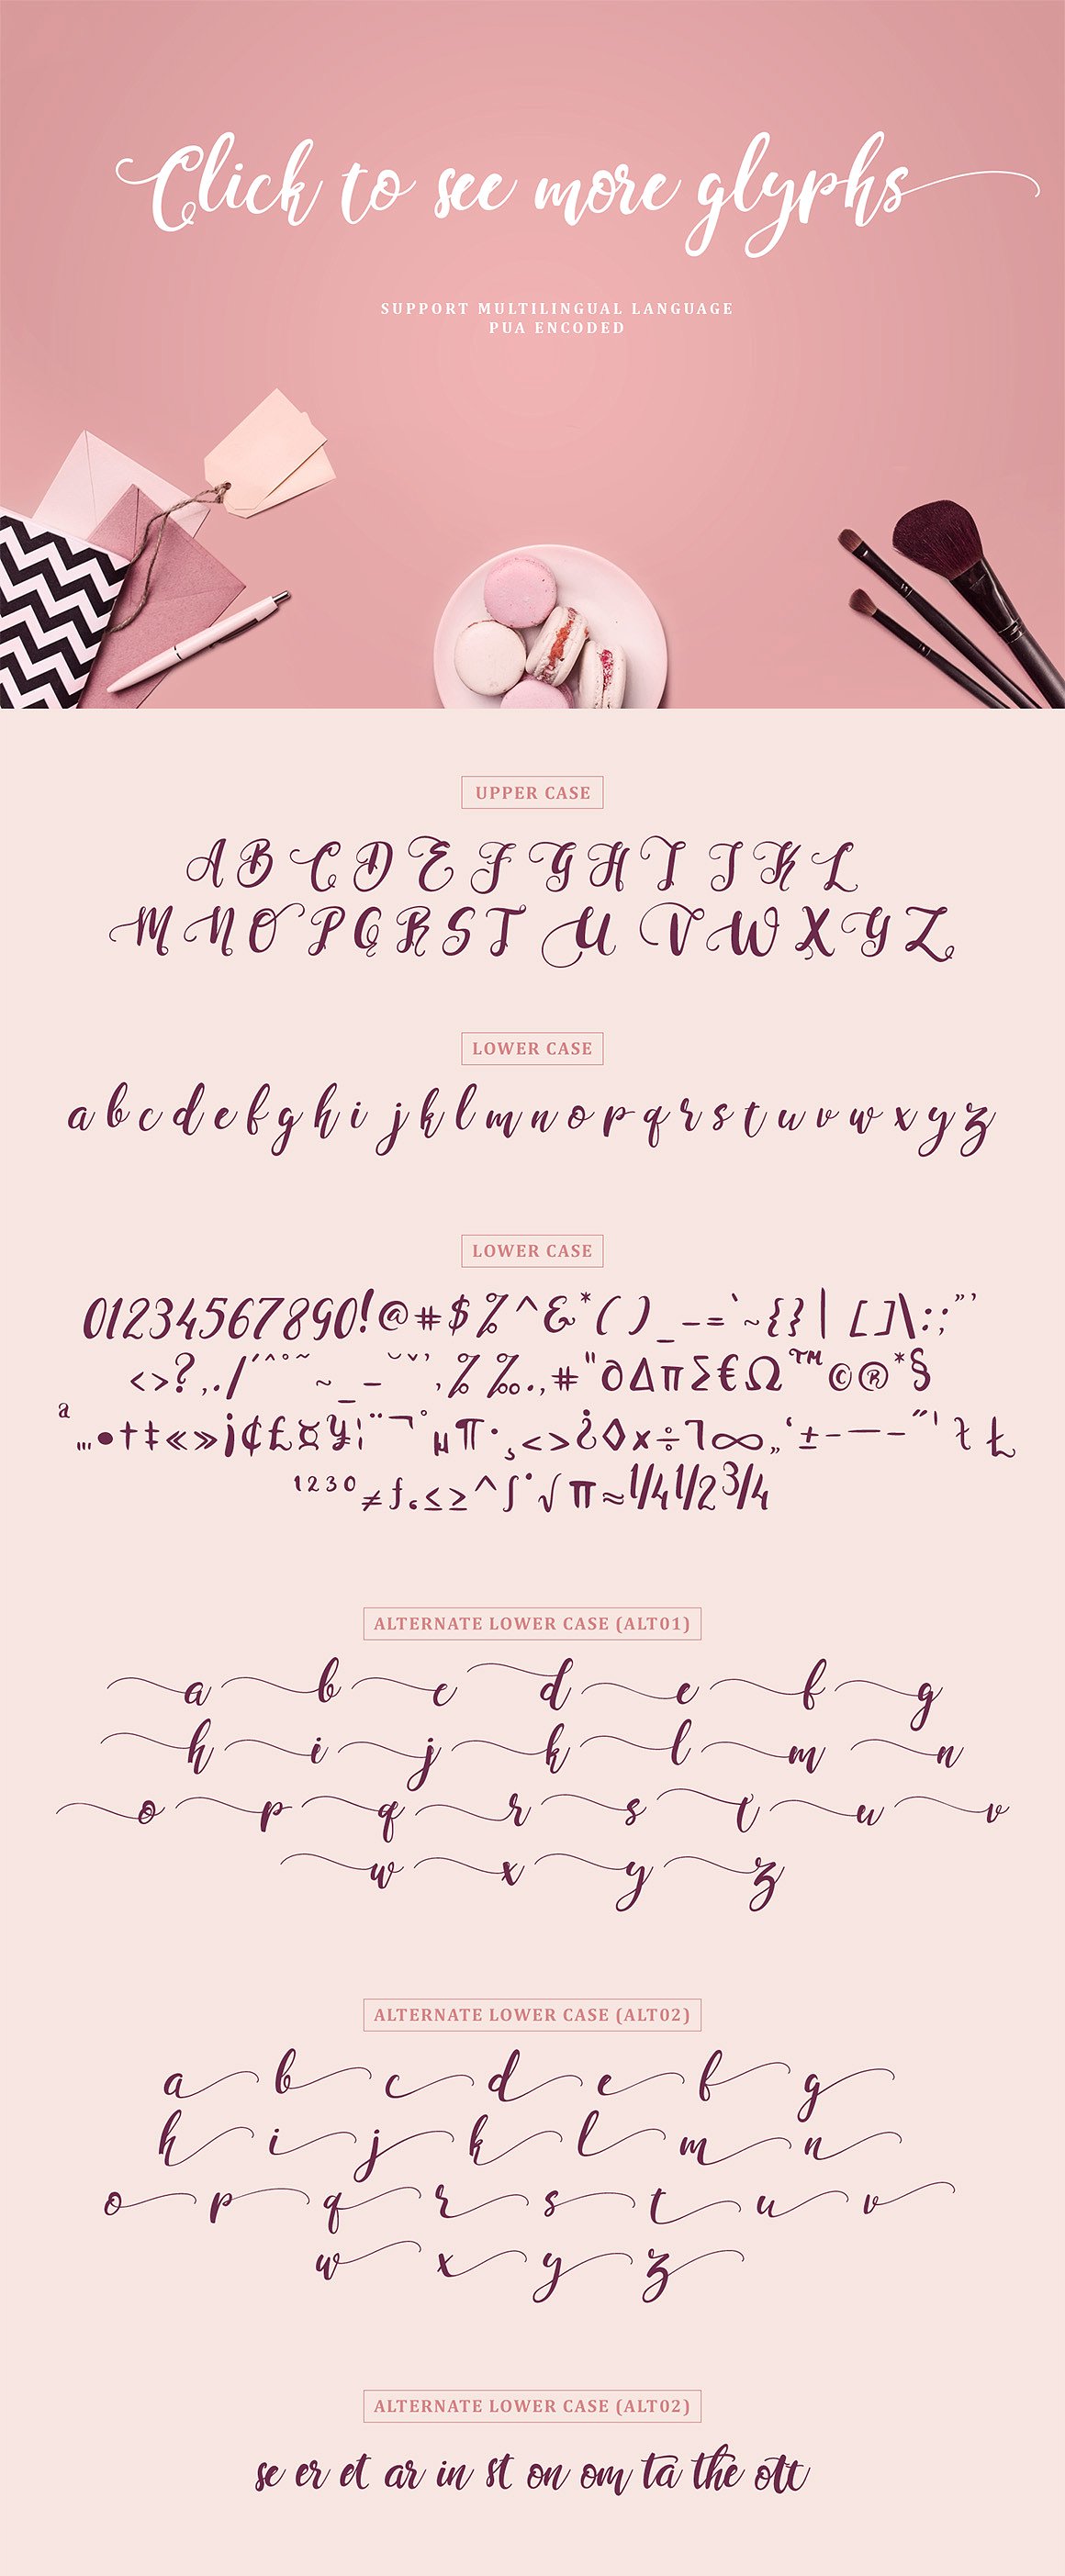 Click to see more glyphs
SUPPORT MULTILINGUAL LANGUAGE
PUA ENCODED
UPPER CASE
A B C D E F G H I J K L
M N O P Q R S T U V W X Y Z
LOWER CASE
a b c d e f g h i j k l m n o p q r s t u v w x y z
LOWER CASE
01234567890!@#$%^&*( )_-=`~{}| []\:;”’
<>?,./´^°~ ~_- ˘ˇ’,%‰.,#"∂∆π∑€Ω™©®*§
ª…•†‡«»¡¢£¤¥¦¨¬°µ¶·¸<>¿◊×÷¬∞„‘±–—-˝' ł Ł
¹²³⁰≠ƒ‚≤≥^∫˙√π≈1/41/23/4
ALTERNATE LOWER CASE (ALT01)
a b c d e f g
h i j k l m n
o p q r s t u v
w x y z
ALTERNATE LOWER CASE (ALT02)
a b c d e f g
h i j k l m n
o p q r s t u v
w x y z
ALTERNATE LOWER CASE (ALT02)
se er et ar in st on om ta the ott